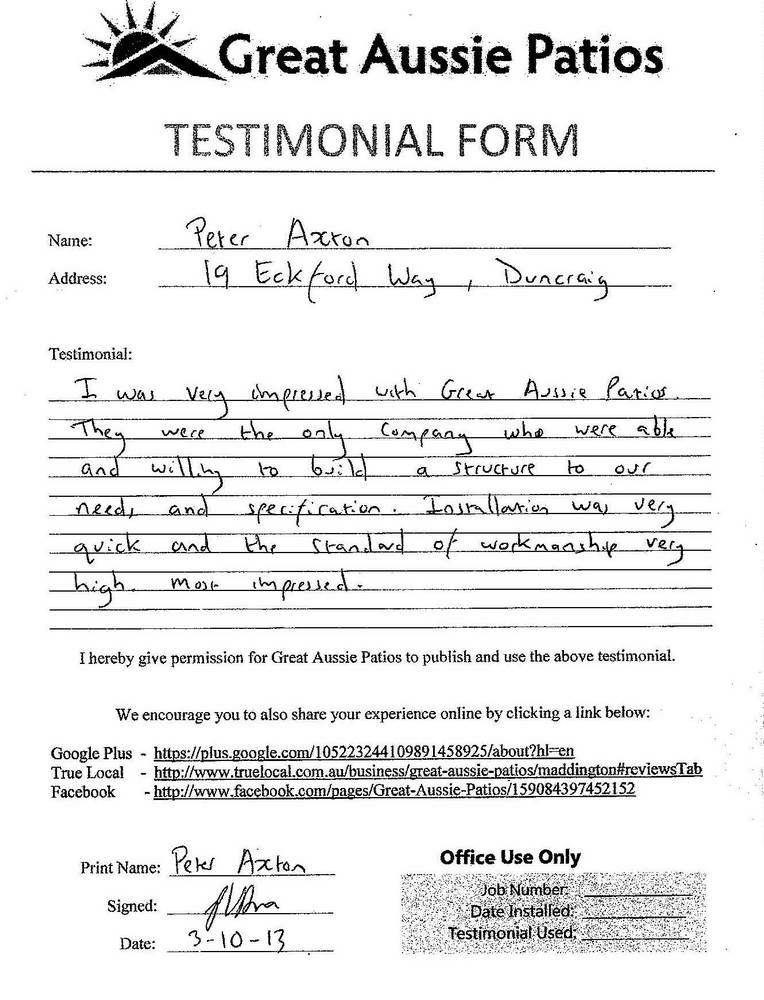 Great Aussie Patios
TESTIMONIAL FORM
Name: Peter Axton
Address: 19 Eckford Way, Duncraig
Testimonial:
I was very impressed with Great Aussie Patios.
They were the only Company who were able
and willing to build a structure to our
needs and specification. Installation was very
quick and the standard of workmanship very
high. most impressed.
I hereby give permission for Great Aussie Patios to publish and use the above testimonial.
We encourage you to also share your experience online by clicking a link below:
Google Plus - https://plus.google.com/105223244109891458925/about?hl=en
True Local - http://www.truelocal.com.au/business/great-aussie-patios/maddington#reviewsTab
Facebook - http://www.facebook.com/pages/Great-Aussie-Patios/159084397452152
Print Name: Peter Axton
Signed:
Date: 3-10-13
Office Use Only
Job Number:
Date Installed:
Testimonial Used: